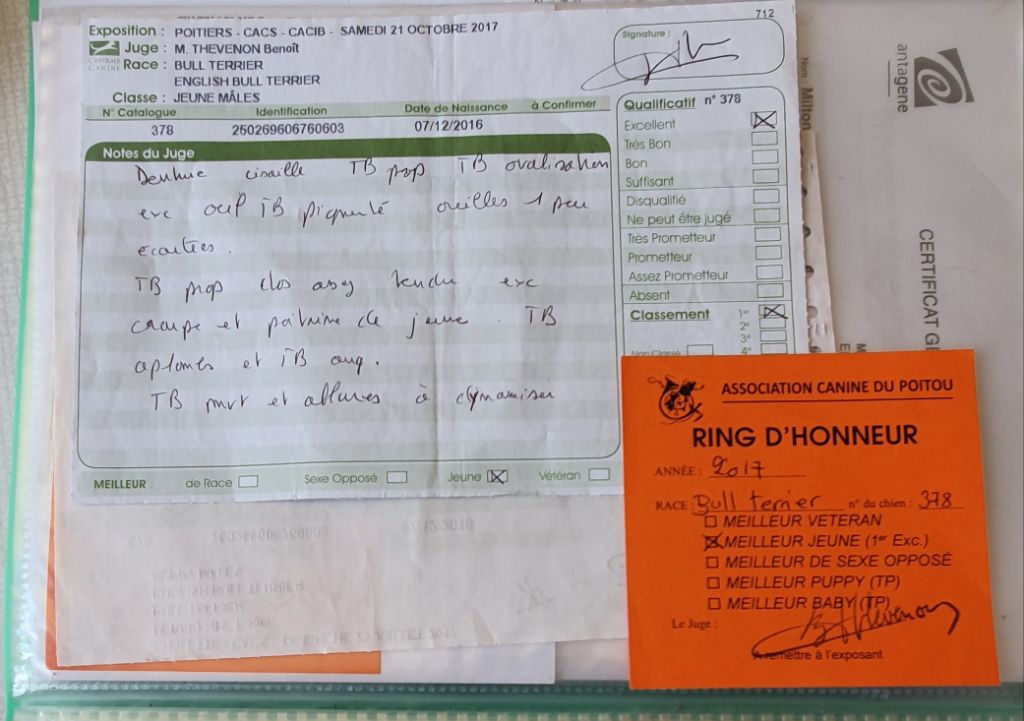 712
Exposition : POITIERS - CACS - CACIB - SAMEDI 21 OCTOBRE 2017
CENTRALE CANINE
Juge : M. THEVENON Benoît
Race : BULL TERRIER
ENGLISH BULL TERRIER
Classe : JEUNE MÂLES
Signature :
N° Catalogue Identification Date de Naissance à Confirmer
378 250269606760603 07/12/2016
Notes du Juge
Denture cisaille TB prop TB ovalisation
exc oeil TB pigmenté oreilles 1 peu
écartées.
TB prop dos assez tendu exc
croupe et poitrine de jeune. TB
aplombs et TB ang.
TB mvt et allures à dynamiser
MEILLEUR : de Race Sexe Opposé Jeune Vétéran
Qualificatif n° 378
Excellent
Très Bon
Bon
Suffisant
Disqualifié
Ne peut être jugé
Très Prometteur
Prometteur
Assez Prometteur
Absent
Classement 1er
2e
3e
Non Classé 4e
ASSOCIATION CANINE DU POITOU
RING D'HONNEUR
ANNÉE : 2017
RACE : Bull terrier n° du chien : 378
MEILLEUR VETERAN
MEILLEUR JEUNE (1er Exc.)
MEILLEUR DE SEXE OPPOSÉ
MEILLEUR PUPPY (TP)
MEILLEUR BABY (TP)
Le Juge : BThevenon
A remettre à l'exposant
antagene
CERTIFICAT
Nom Milton